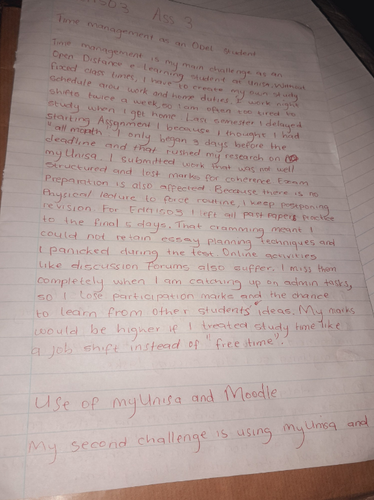 1503 Ass 3
Time management as an Odel student
Time management is my main challenge as an
Open Distance e-Learning student at Unisa. Without
fixed class times, I have to create my own study
schedule around work and home duties. I work night
shifts twice a week, so I am often too tired to
study when I get home. Last semester I delayed
starting Assignment 1 because I thought I had
"all month". I only began 3 days before the
deadline and that rushed my research on
myUnisa. I submitted work that was not well
structured and lost marks for coherence. Exam
Preparation is also affected. Because there is no
Physical lecture to force routine, I keep postponing
revision. For Enn1503 I left all past papers practice
to the final 5 days. That cramming meant I
could not retain essay planning techniques and
I panicked during the test. Online activities
like discussion forums also suffer. I miss them
completely when I am catching up on admin tasks,
so I lose participation marks and the chance
to learn from other students' ideas. My marks
would be higher if I treated study time like
a job shift instead of "free time".
Use of myUnisa and Moodle
My second challenge is using myUnisa and